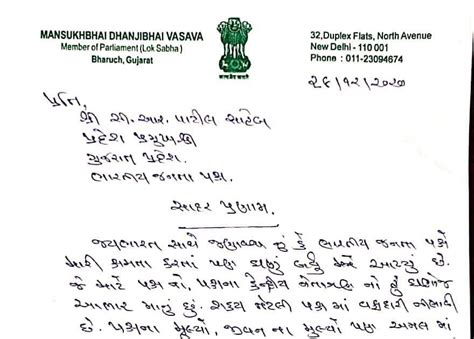 MANSUKHBHAI DHANJIBHAI VASAVA
Member of Parliament (Lok Sabha)
Bharuch, Gujarat
32,Duplex Flats, North Avenue
New Delhi - 110 001
Phone : 011-23094674
૨૮/૧૨/૨૦૨૦
પ્રતિ,
શ્રી સી. આર. પાટીલ સાહેબ
પ્રદેશ પ્રમુખશ્રી
ગુજરાત પ્રદેશ.
ભારતીય જનતા પક્ષ.
સાદર પ્રણામ.
જયભારત સાથે જણાવવાનું કે ભારતીય જનતા પક્ષે
મારી ક્ષમતા કરતાં પણ ઘણું બધું મને આપ્યું છે.
જે માટે પક્ષનો, પક્ષના કેન્દ્રીય નેતાગણનો હું ઘણોજ
આભાર માનું છું. શક્ય તેટલી પક્ષમાં વફાદારી નીભાવી
છે. પક્ષના મુલ્યો, જીવનના મુલ્યો પણ અમલમાં